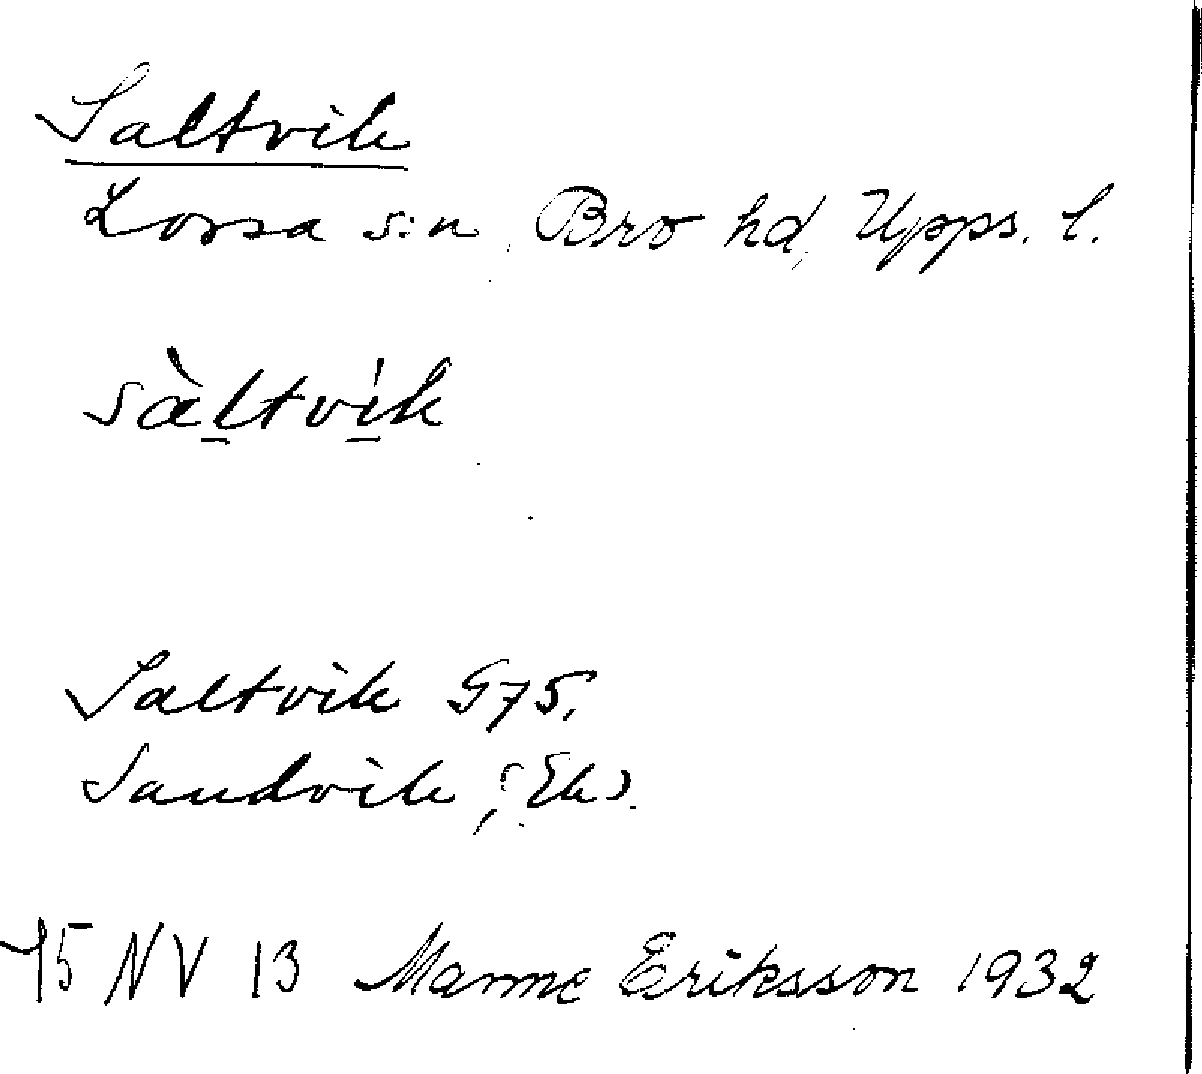 Saltvik
Lossa s:n, Bro hd, Upps. l.
sàltvík
Saltvik G75.
Sandvik, Ek.
75 NV 13 Manne Eriksson 1932